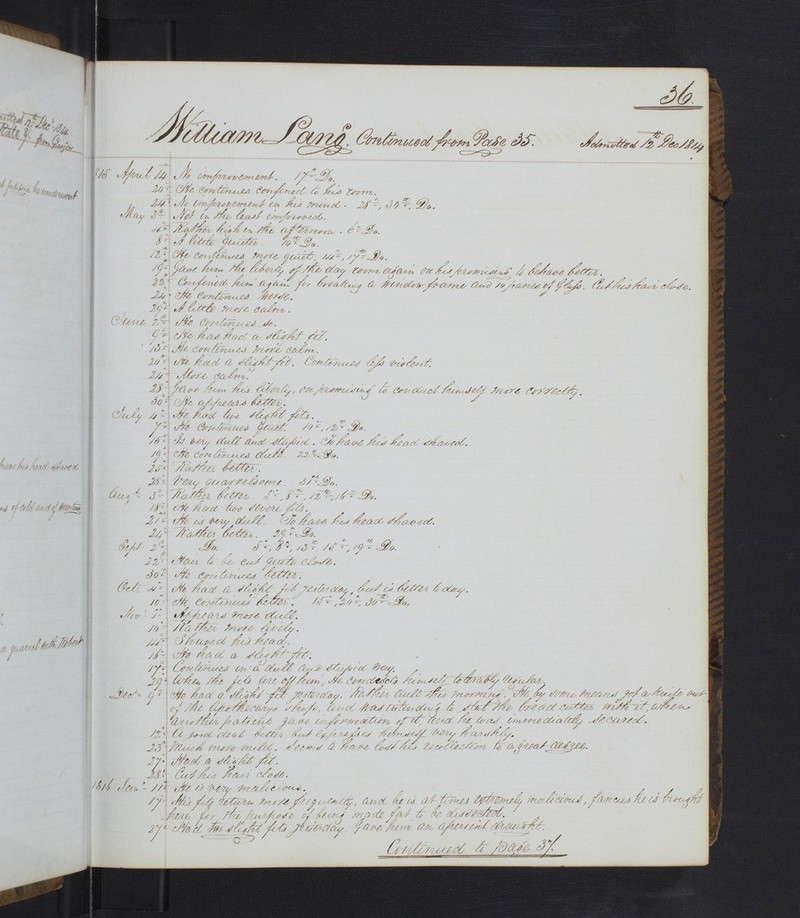 36.
William Lang. Continued from Page 35. Admitted 12th Dec 1814
April 14 No improvement. 17th Do.
20th He continues confined to his room.
24th No improvement in his mind. 28th, 30th, Do.
May 2d Not in the least improved.
4th Rather high in the afternoon. 6th Do.
8th A little quieter. 10th Do.
12th He continues more quiet. 14th, 17th Do.
19th Gave him the liberty of the day room again on his promising to behave better.
22d Confined him again for breaking a window frame and 10 panes of Glass. Cut his hair close.
24th He continues worse.
29th A little more calm.
June 2d He continues so.
9th He has had a slight fit.
13th He continues more calm.
20th He had a slight fit. Continues less violent.
24th More calm.
28th Gave him his liberty, on promising to conduct himself more correctly.
30th He appears better.
July 4th He had two slight fits.
7th He continues quiet. 10th, 12th Do.
16th Is very dull and stupid. To have his head shaved.
19th He continues dull. 22d Do.
25th Rather better.
28th Very quarrelsome. 31st Do.
Augt. 3d Rather better. 8th, 12th, 16th Do.
18th He had two severe fits.
21st He is very dull. To have his head shaved.
24th Rather better. 29th Do.
Sept 2d Do. 5th, 8th, 13th, 15th, 19th Do.
22d Hair to be cut quite close.
30th He continues better.
Octr. 4th He had a slight fit yesterday, but is better to day.
10th He continues better. 15th, 20th, 30th Do.
Novr. Appears more dull.
10th Rather more lively.
14th Shaved his head.
16th He had a slight fit.
17th Continues in a dull and stupid way.
29th When the fits are off him, He conducts himself tolerably regular.
Decr. 9th He had a slight fit yesterday. Rather dull this morning. He, by some means got a knife out
of the Apothecarys Shop, and was intending to stab the bread cutter with it, when
another patient gave information of it, and he was immediately secured.
12th A good deal better but expresses himself very harshly.
23d Much more mild. Seems to have lost his recollection to a great degree.
27th Had a slight fit.
28th Cut his hair close.
1816 Jany. 11th He is very malicious.
17th His fits return more frequently, and he is at times extremely malicious, fancies he is brought
here for the purpose of being made fat to be dissected.
27th Had two slight fits yesterday. Gave him an aperient draught.
Continued to page 37.